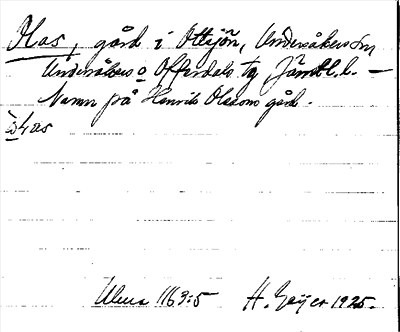 Olas, gård i Ottsjön, Undersåkers sn
Undersåkers o Offerdals tg Jämtl. l. —
Namn på Henrik Olssons gård.
ò̀las
Ulma 1163:5 H. Geijer 1925.